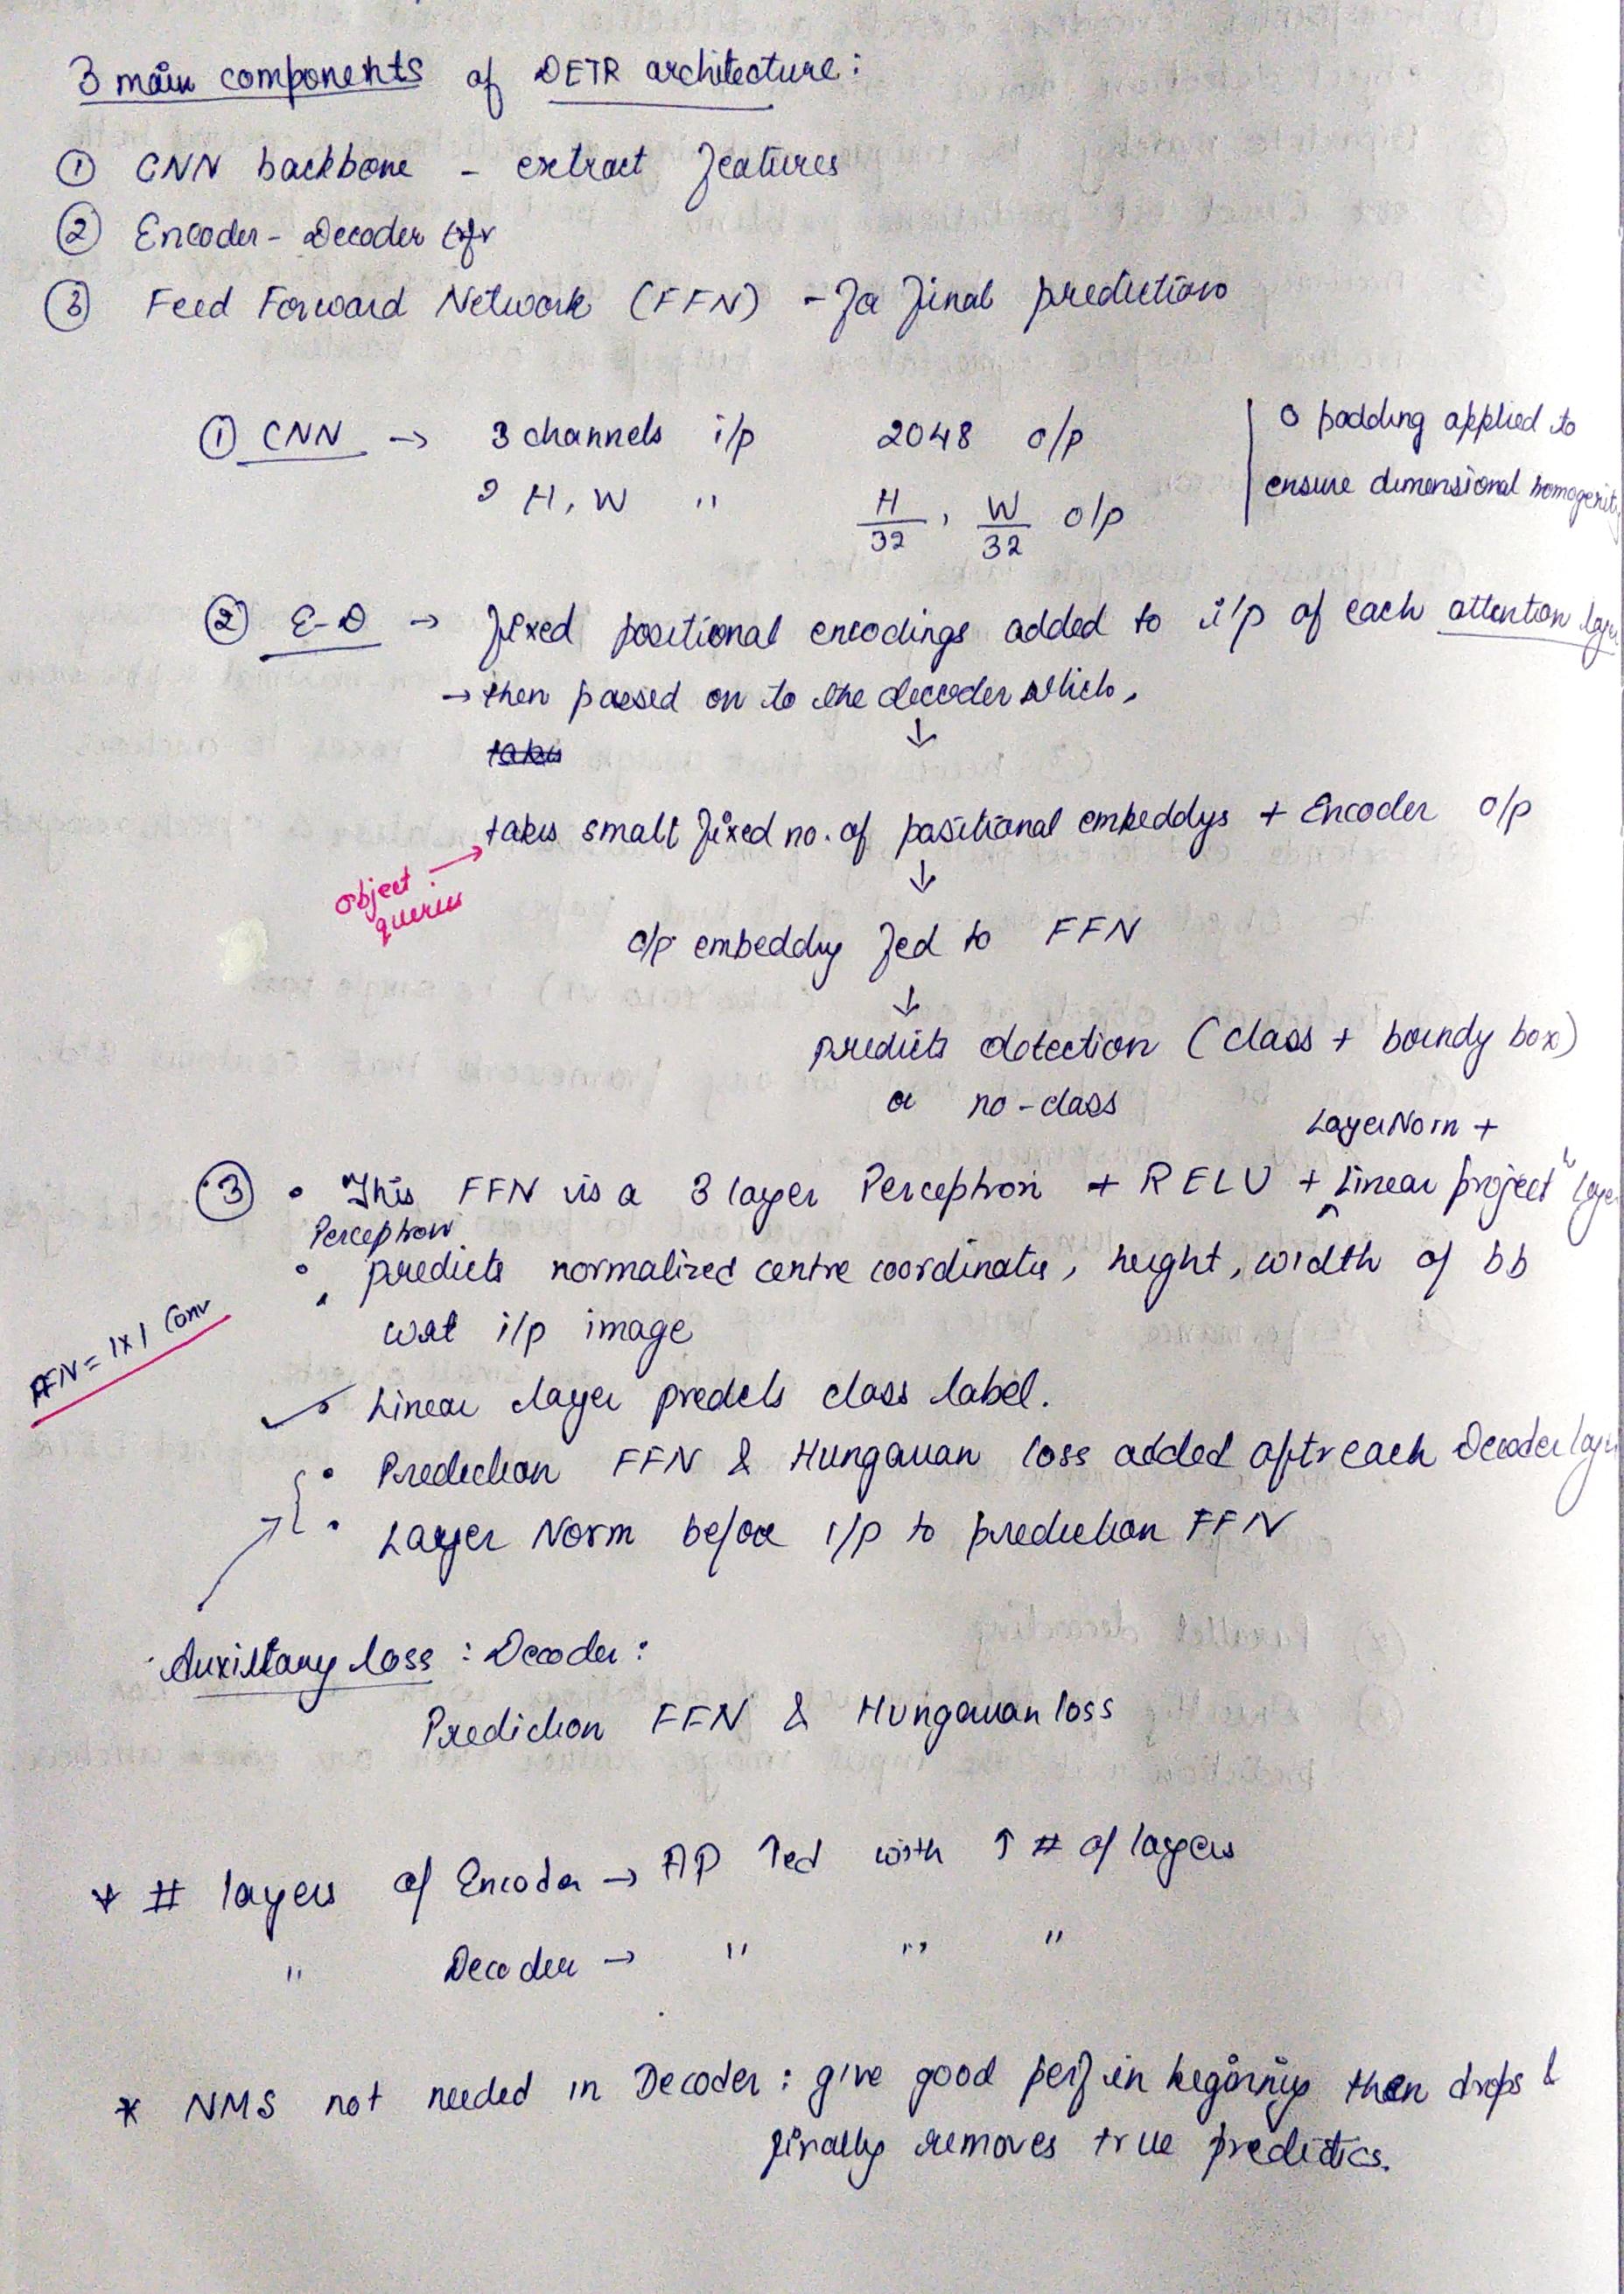 3 main components of DETR architecture:
① CNN backbone - extract features
② Encoder-Decoder tfr
③ Feed Forward Network (FFN) - for final prediction
① CNN → 3 channels i/p 2048 o/p
H, W " H/32, W/32 o/p
0 padding applied to
ensure dimensional homogenit
② E-D → fixed positional encodings added to i/p of each attention laye
→ then passed on to the decoder which,
↓
takes
takes small fixed no. of positional embeddgs + Encoder o/p
object queries →
↓
o/p embeddg fed to FFN
↓
predicts detection (class + boundg box)
or no-class
LayerNorm +
③ • This FFN is a 3 layer Perceptron + RELU + Linear project" laye
Perceptron
• predicts normalized centre coordinates, height, width of bb
wrt i/p image
FFN = 1x1 Conv
• Linear layer predicts class label.
• Prediction FFN & Hungarian loss added aftr each Decoder laye
• Layer Norm before i/p to prediction FFN
Auxiliary loss : Decoder :
Prediction FFN & Hungarian loss
* # layers of Encoder → AP ↑ed with ↑ # of layers
" Decoder → " " "
* NMS not needed in Decoder : give good perf in beginnig then drops &
finally removes true predictics.